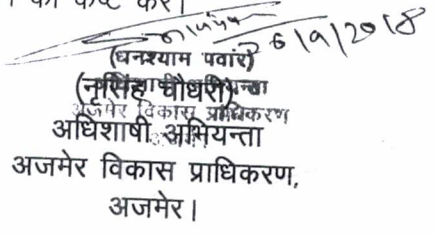 का कष्ट करें।
6/9/2018
(घनश्याम पवांर)
(नृसिंह चौधरी)
अजमेर विकास प्राधिकरण
अधिशाषी अभियन्ता
अजमेर विकास प्राधिकरण,
अजमेर।